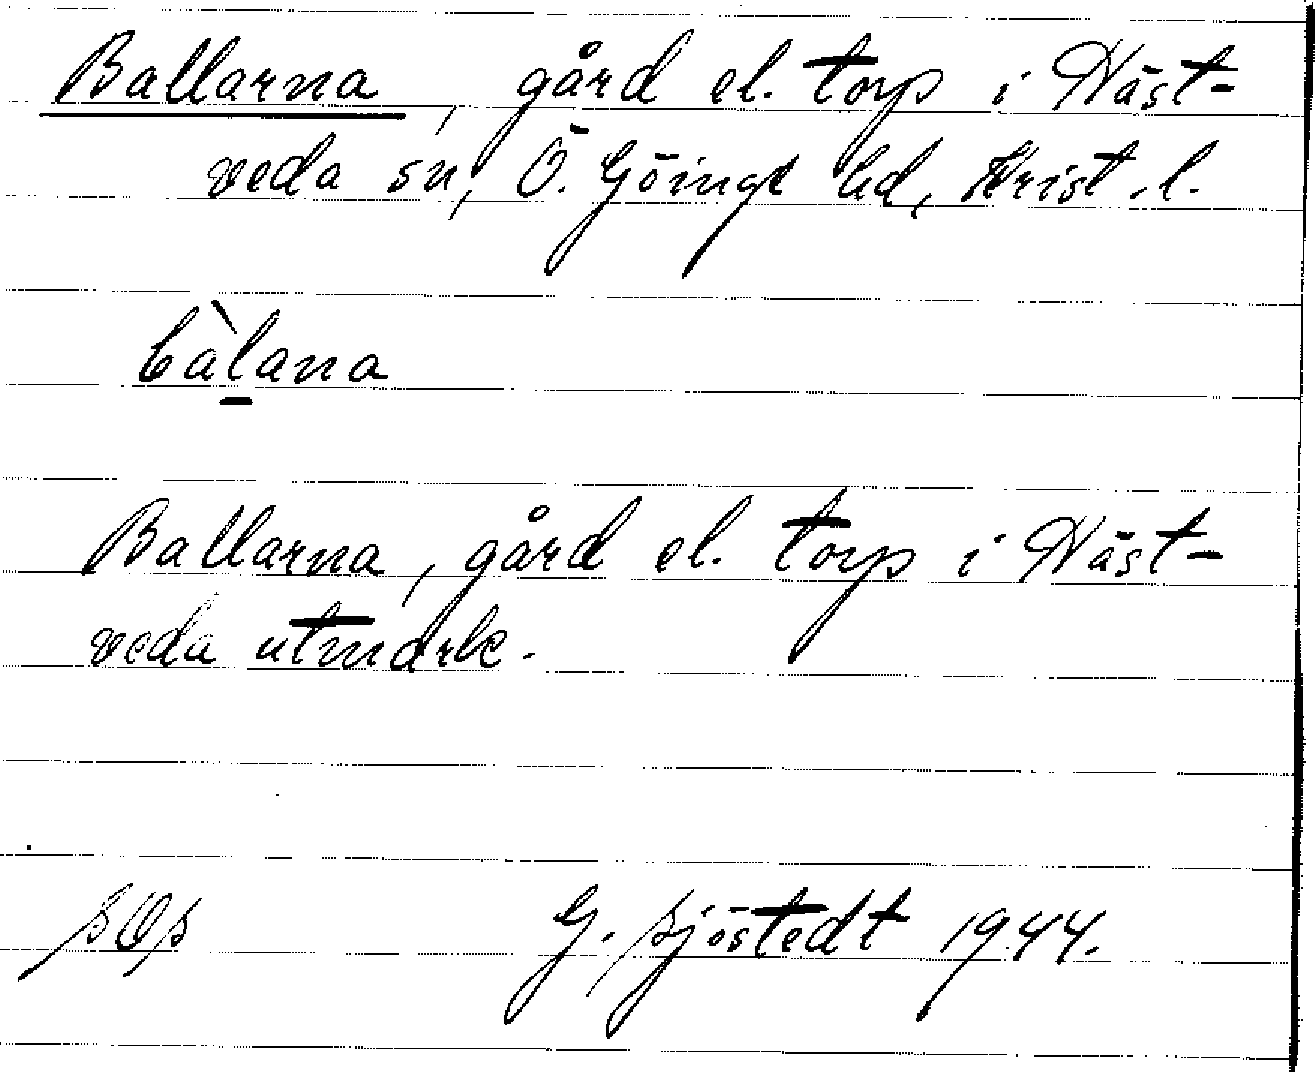 Ballarna, gård el. torp i Häst-
veda sn, Ö. Göinge hd, Krist. l.
bàlana
Ballarna, gård el. torp i Häst-
veda utmark.
G. Sjöstedt 1944.